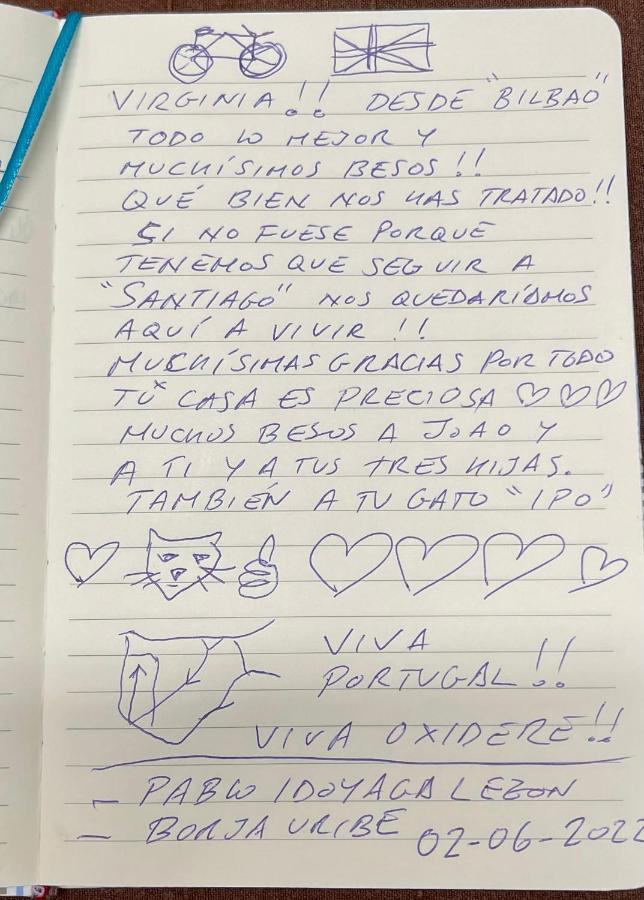 VIRGINIA!! DESDE "BILBAO"
TODO LO MEJOR Y
MUCHÍSIMOS BESOS!!
QUÉ BIEN NOS HAS TRATADO!!
SI NO FUESE PORQUE
TENEMOS QUE SEGUIR A
"SANTIAGO" NOS QUEDARÍAMOS
AQUÍ A VIVIR !!
MUCHÍSIMAS GRACIAS POR TODO
TU CASA ES PRECIOSA ♡♡♡
MUCHOS BESOS A JOAO Y
A TI Y A TUS TRES HIJAS.
TAMBIÉN A TU GATO "IPO"
VIVA
PORTUGAL!!
VIVA OXIDERE!!
- PABLO IDOYAGA LEZON
- BORJA URIBE 02-06-2022